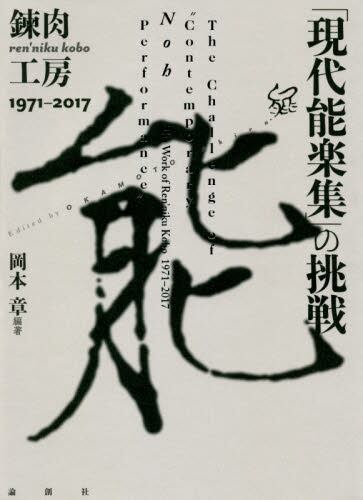 「現代能楽集」の挑戦
錬肉
ren'niku kobo
工房
1971–2017
The Challenge of
"Contemporary
Noh
Performance"
The Work of Ren'niku Kobo 1971–2017
能
Edited by OKAMOTO Akira
岡本 章 編著
論創社